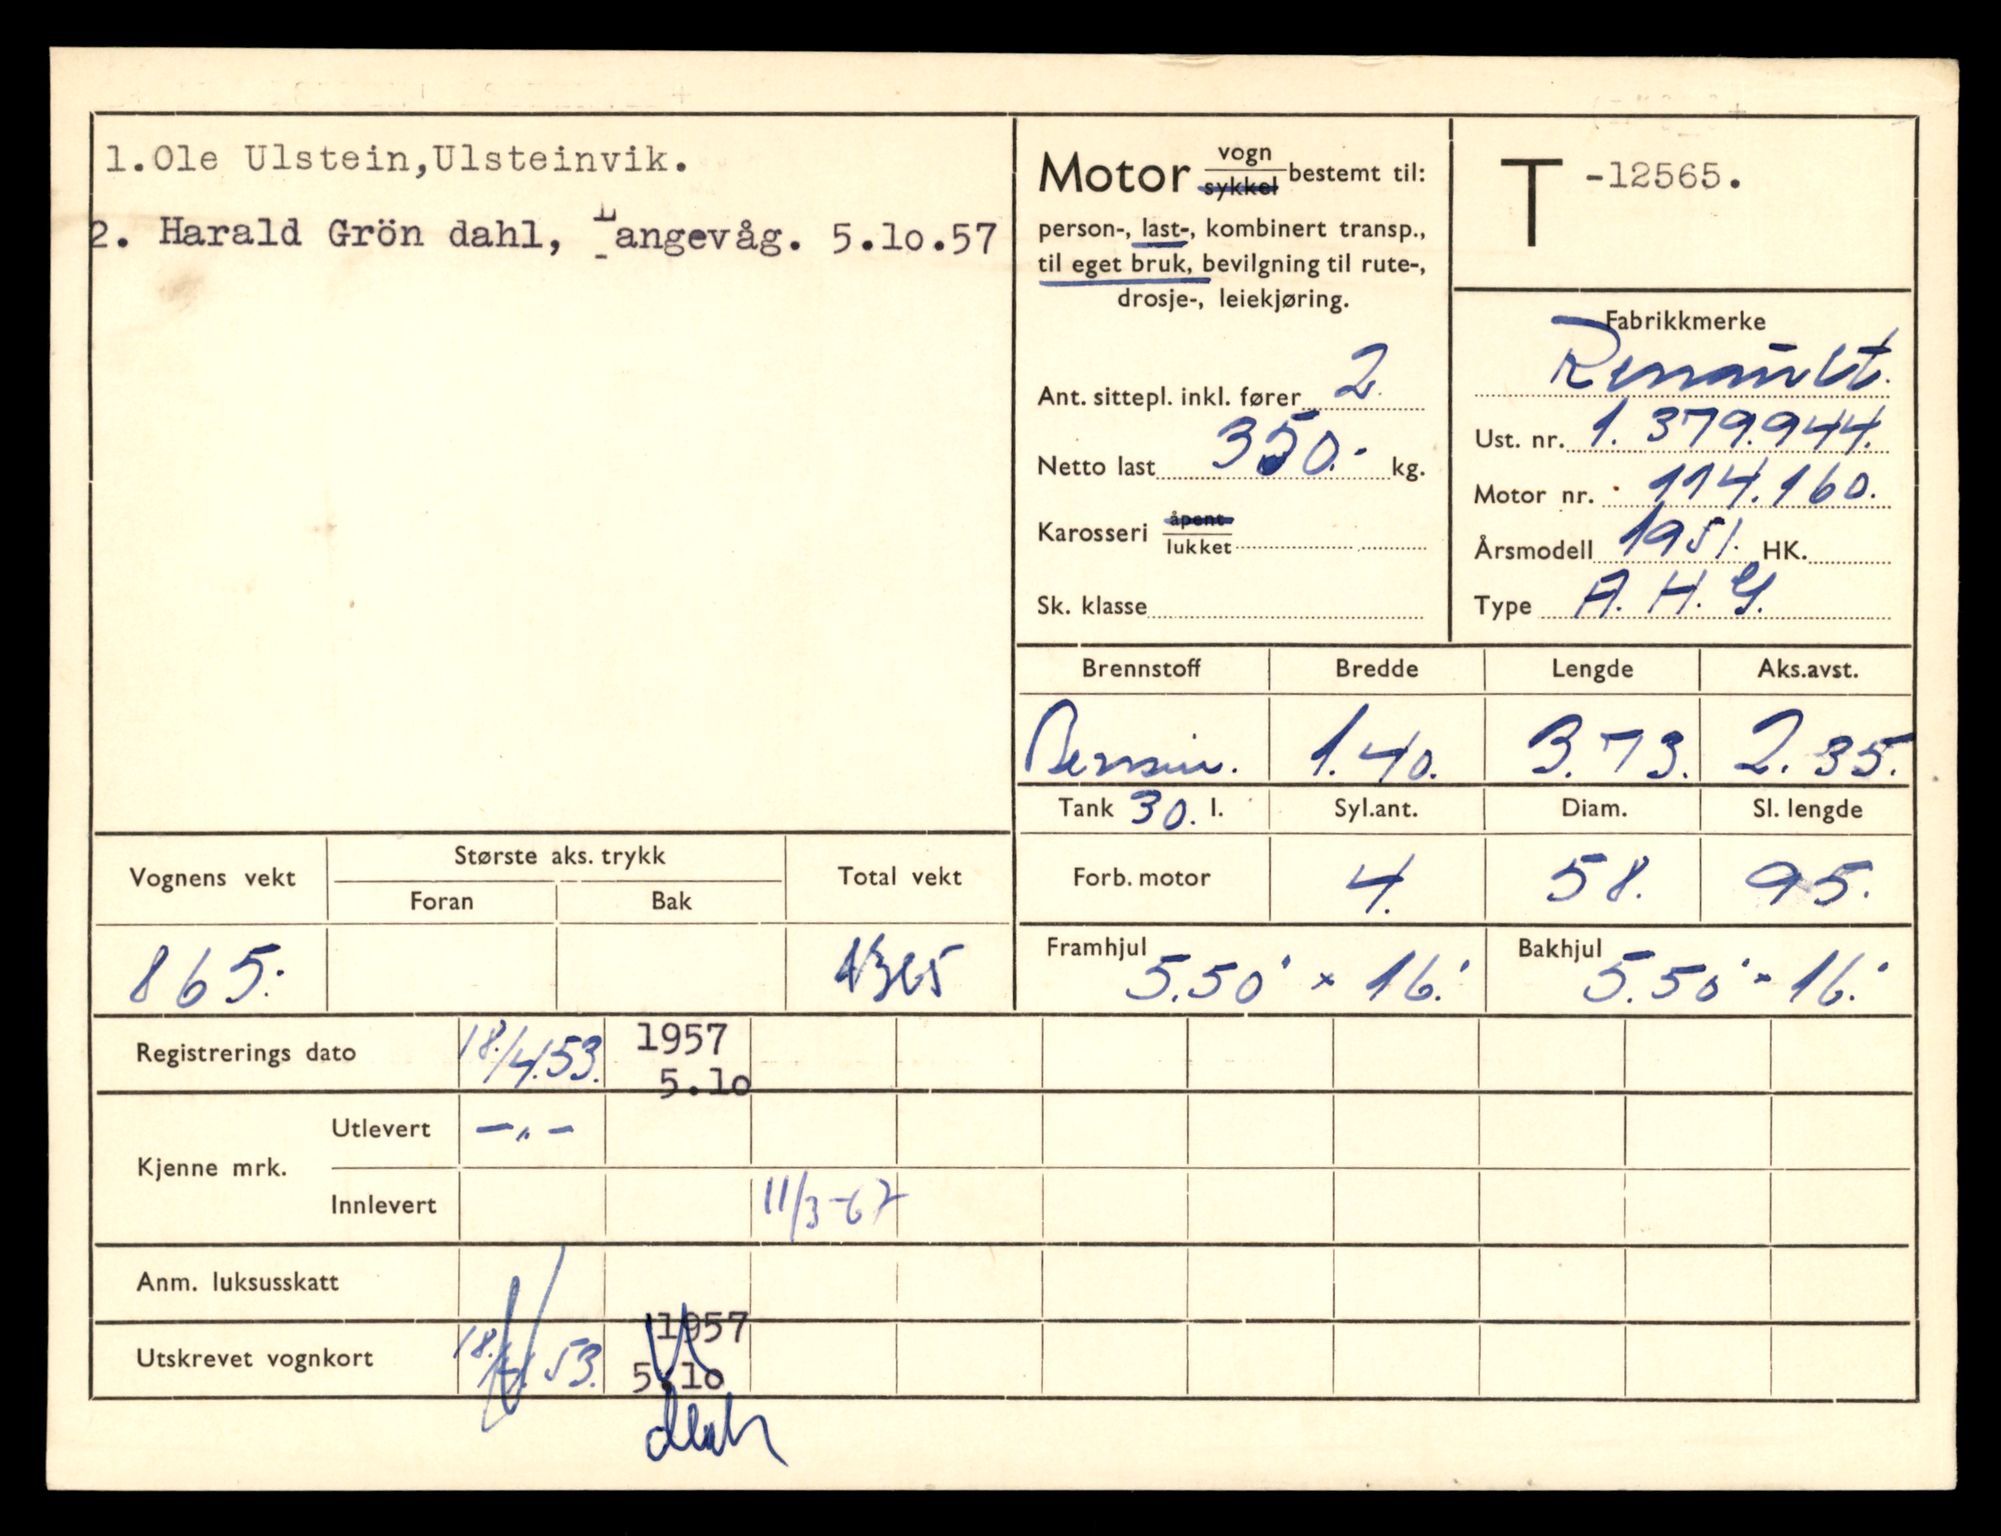 1.Ole Ulstein,Ulsteinvik.
2. Harald Grön dahl, Langevåg. 5.lo.57
Motor vogn sykkel bestemt til:
person-, last-, kombinert transp.,
til eget bruk, bevilgning til rute-,
drosje-, leiekjøring.
Ant. sittepl. inkl. fører 2
Netto last 350.- kg.
Karosseri åpent lukket
Sk. klasse
T -12565.
Fabrikkmerke
Renault.
Ust. nr. 1.379.944.
Motor nr. 114.160.
Årsmodell 1951. HK.
Type A. H. G.
Brennstoff Bredde Lengde Aks.avst.
Bensin. 1.40. 3.73. 2.35.
Tank 30. l. Syl.ant. Diam. Sl. lengde
Forb. motor 4. 58. 95.
Framhjul 5.50" × 16." Bakhjul 5.50" - 16."
Vognens vekt Største aks. trykk Total vekt
Foran Bak
865.- 1365
Registrerings dato 18./4.53. 1957
5.lo
Kjenne mrk. Utlevert -„-
Innlevert 11/3-67
Anm. luksusskatt
Utskrevet vognkort 18./4.53. 1957
5.lo